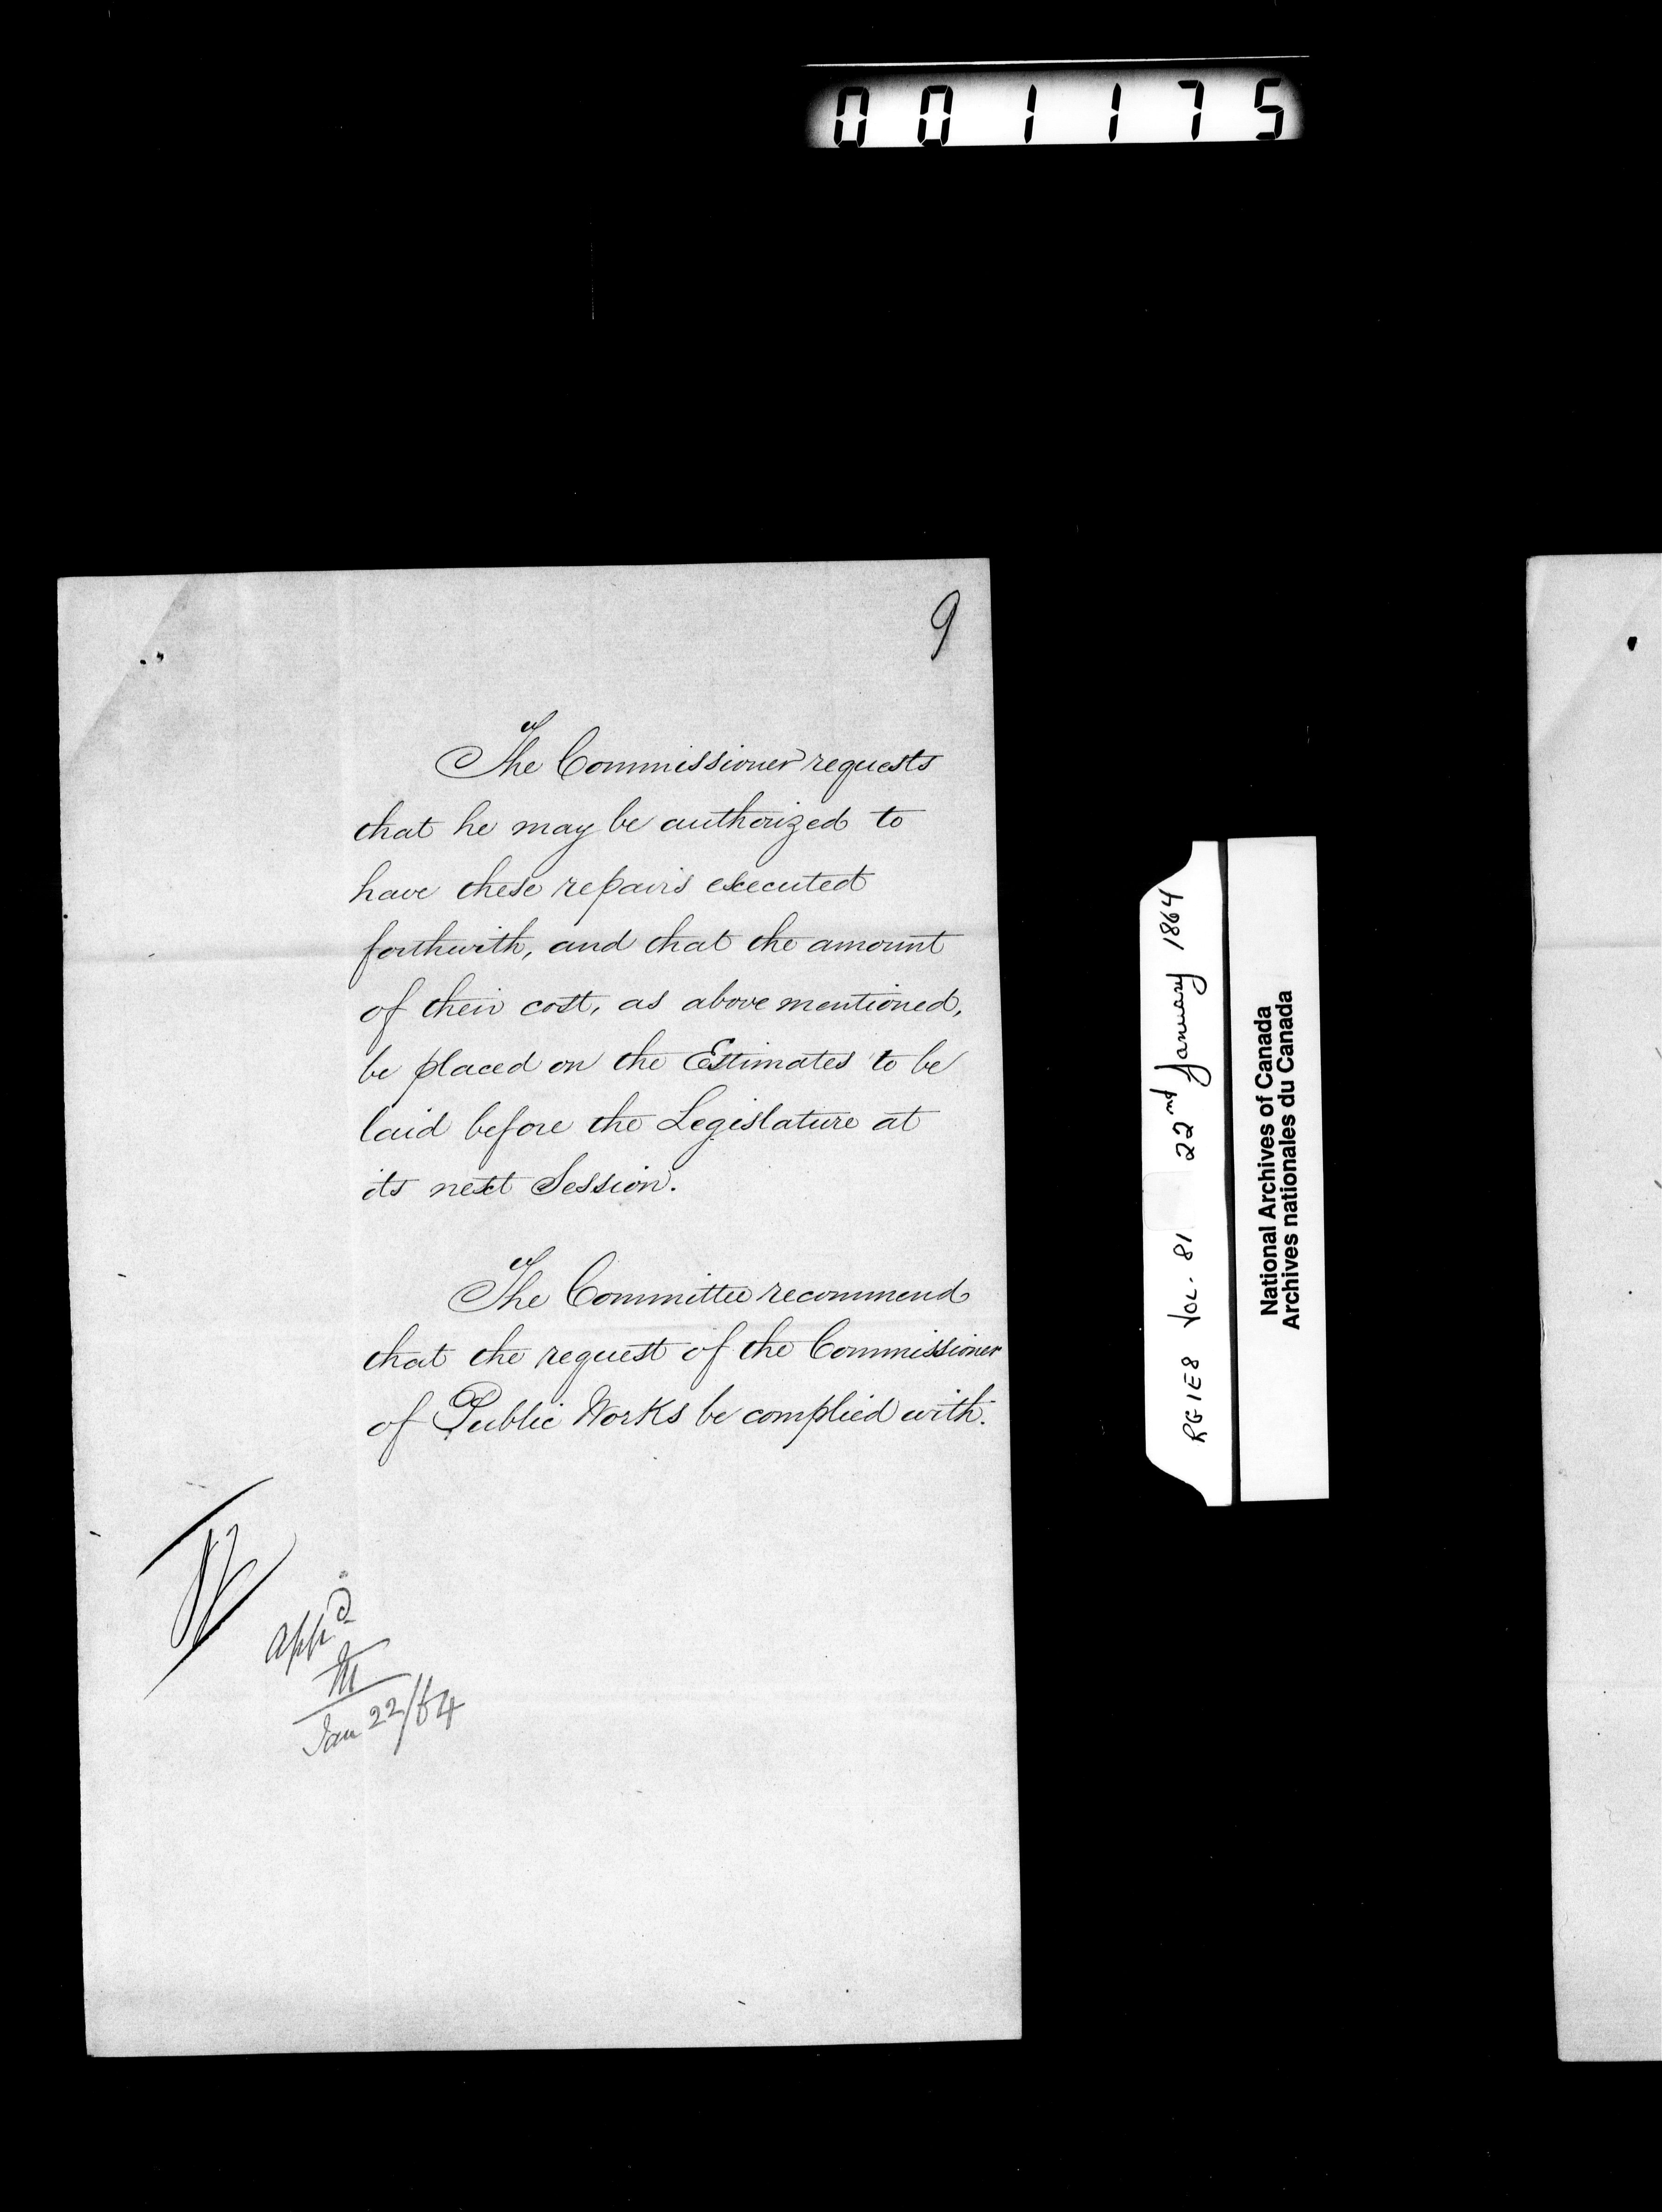 001175
9
The Commissioner requests
that he may be authorized to
have these repairs executed
forthwith, and that the amount
of their cost, as above mentioned,
be placed on the Estimates to be
laid before the Legislature at
its next Session.
The Committee recommend
that the request of the Commissioner
of Public Works be complied with.
Appd
M
Jan 22/64
RG 1E8 Vol. 81 22nd January 1864
National Archives of Canada
Archives nationales du Canada